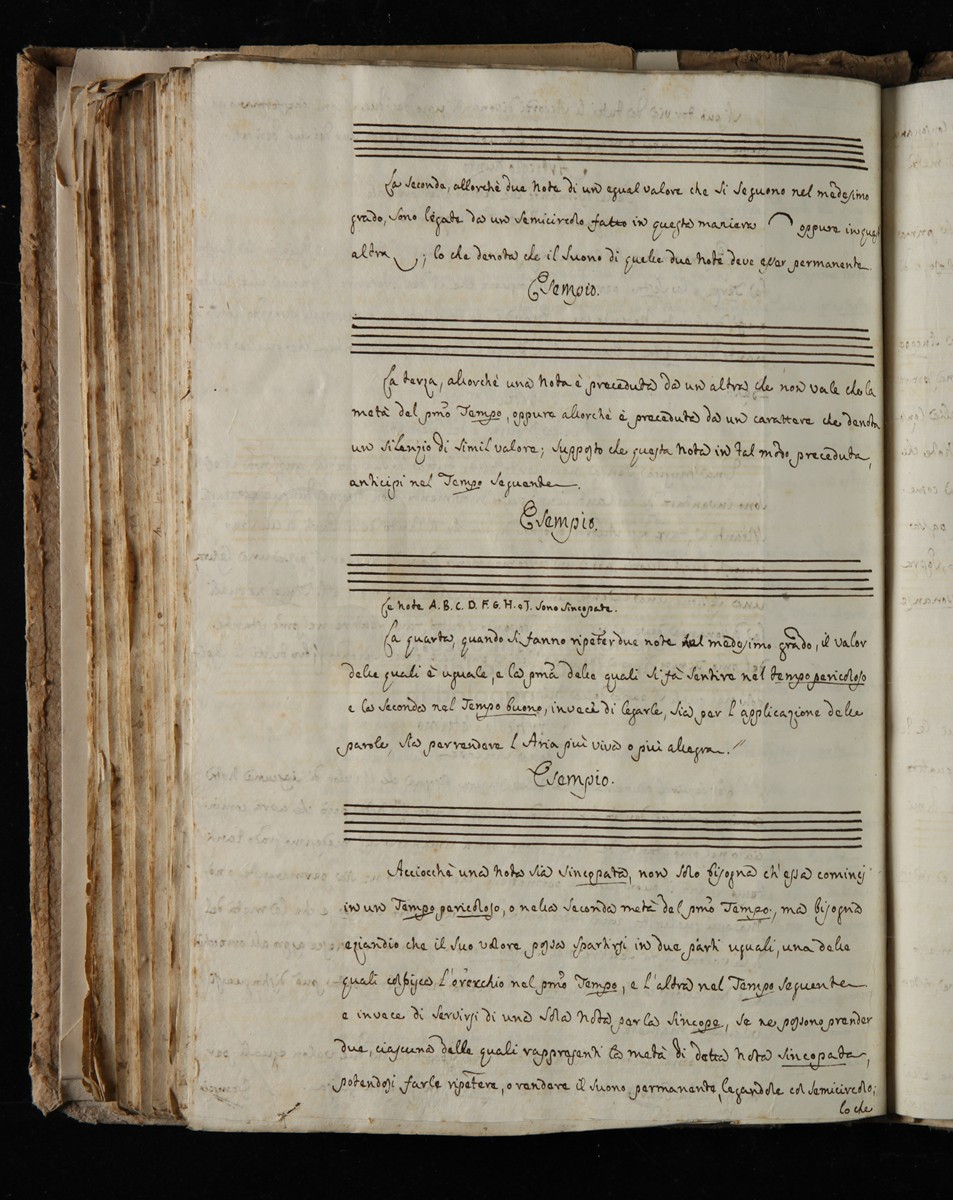 La seconda, allorchè due Note di un egual valore che si seguono nel medesimo
grado, sono legate da un semicircolo fatto in questa maniera oppure in quest
altra ; lo che denota che il suono di quelle due Note deve esser permanente
Esempio.
La terza, allorchè una Nota è preceduta da un altra che non vale che la
metà del pmo Tempo, oppure allorchè è preceduta da un carattere che denota
un silenzio di simil valore; supposto che questa Nota in tal modo preceduta,
anticipi nel Tempo seguente.
Esempio.
Le note A. B. C. D. F. G. H. e J. sono sincopate.
La quarta, quando si fanno ripeter due note nel medesimo grado, il valor
delle quali è uguale, e la pma delle quali si fà sentire nel tempo pericoloso
e la seconda nel Tempo buono, invece di legarle, sia per l'applicazione delle
parole, sia per rendere l Aria più viva o più allegra.
Esempio.
Acciocchè una Nota sia sincopata, non solo bisogna ch'essa cominci
in un Tempo pericoloso, o nella seconda metà del pmo Tempo, ma bisogna
eziandio che il suo valore possa spartirsi in due parti uguali, una delle
quali colpisca l'orecchio nel pmo Tempo, e l'altra nel Tempo seguente
e invece di servirsi di una sola Nota per la sincope, se ne possono prender
due, ciascuna delle quali rappresenti la metà di detta Nota sincopata,
potendosi farle ripetere, o rendere il suono permanente legandole col semicircolo;
lo che